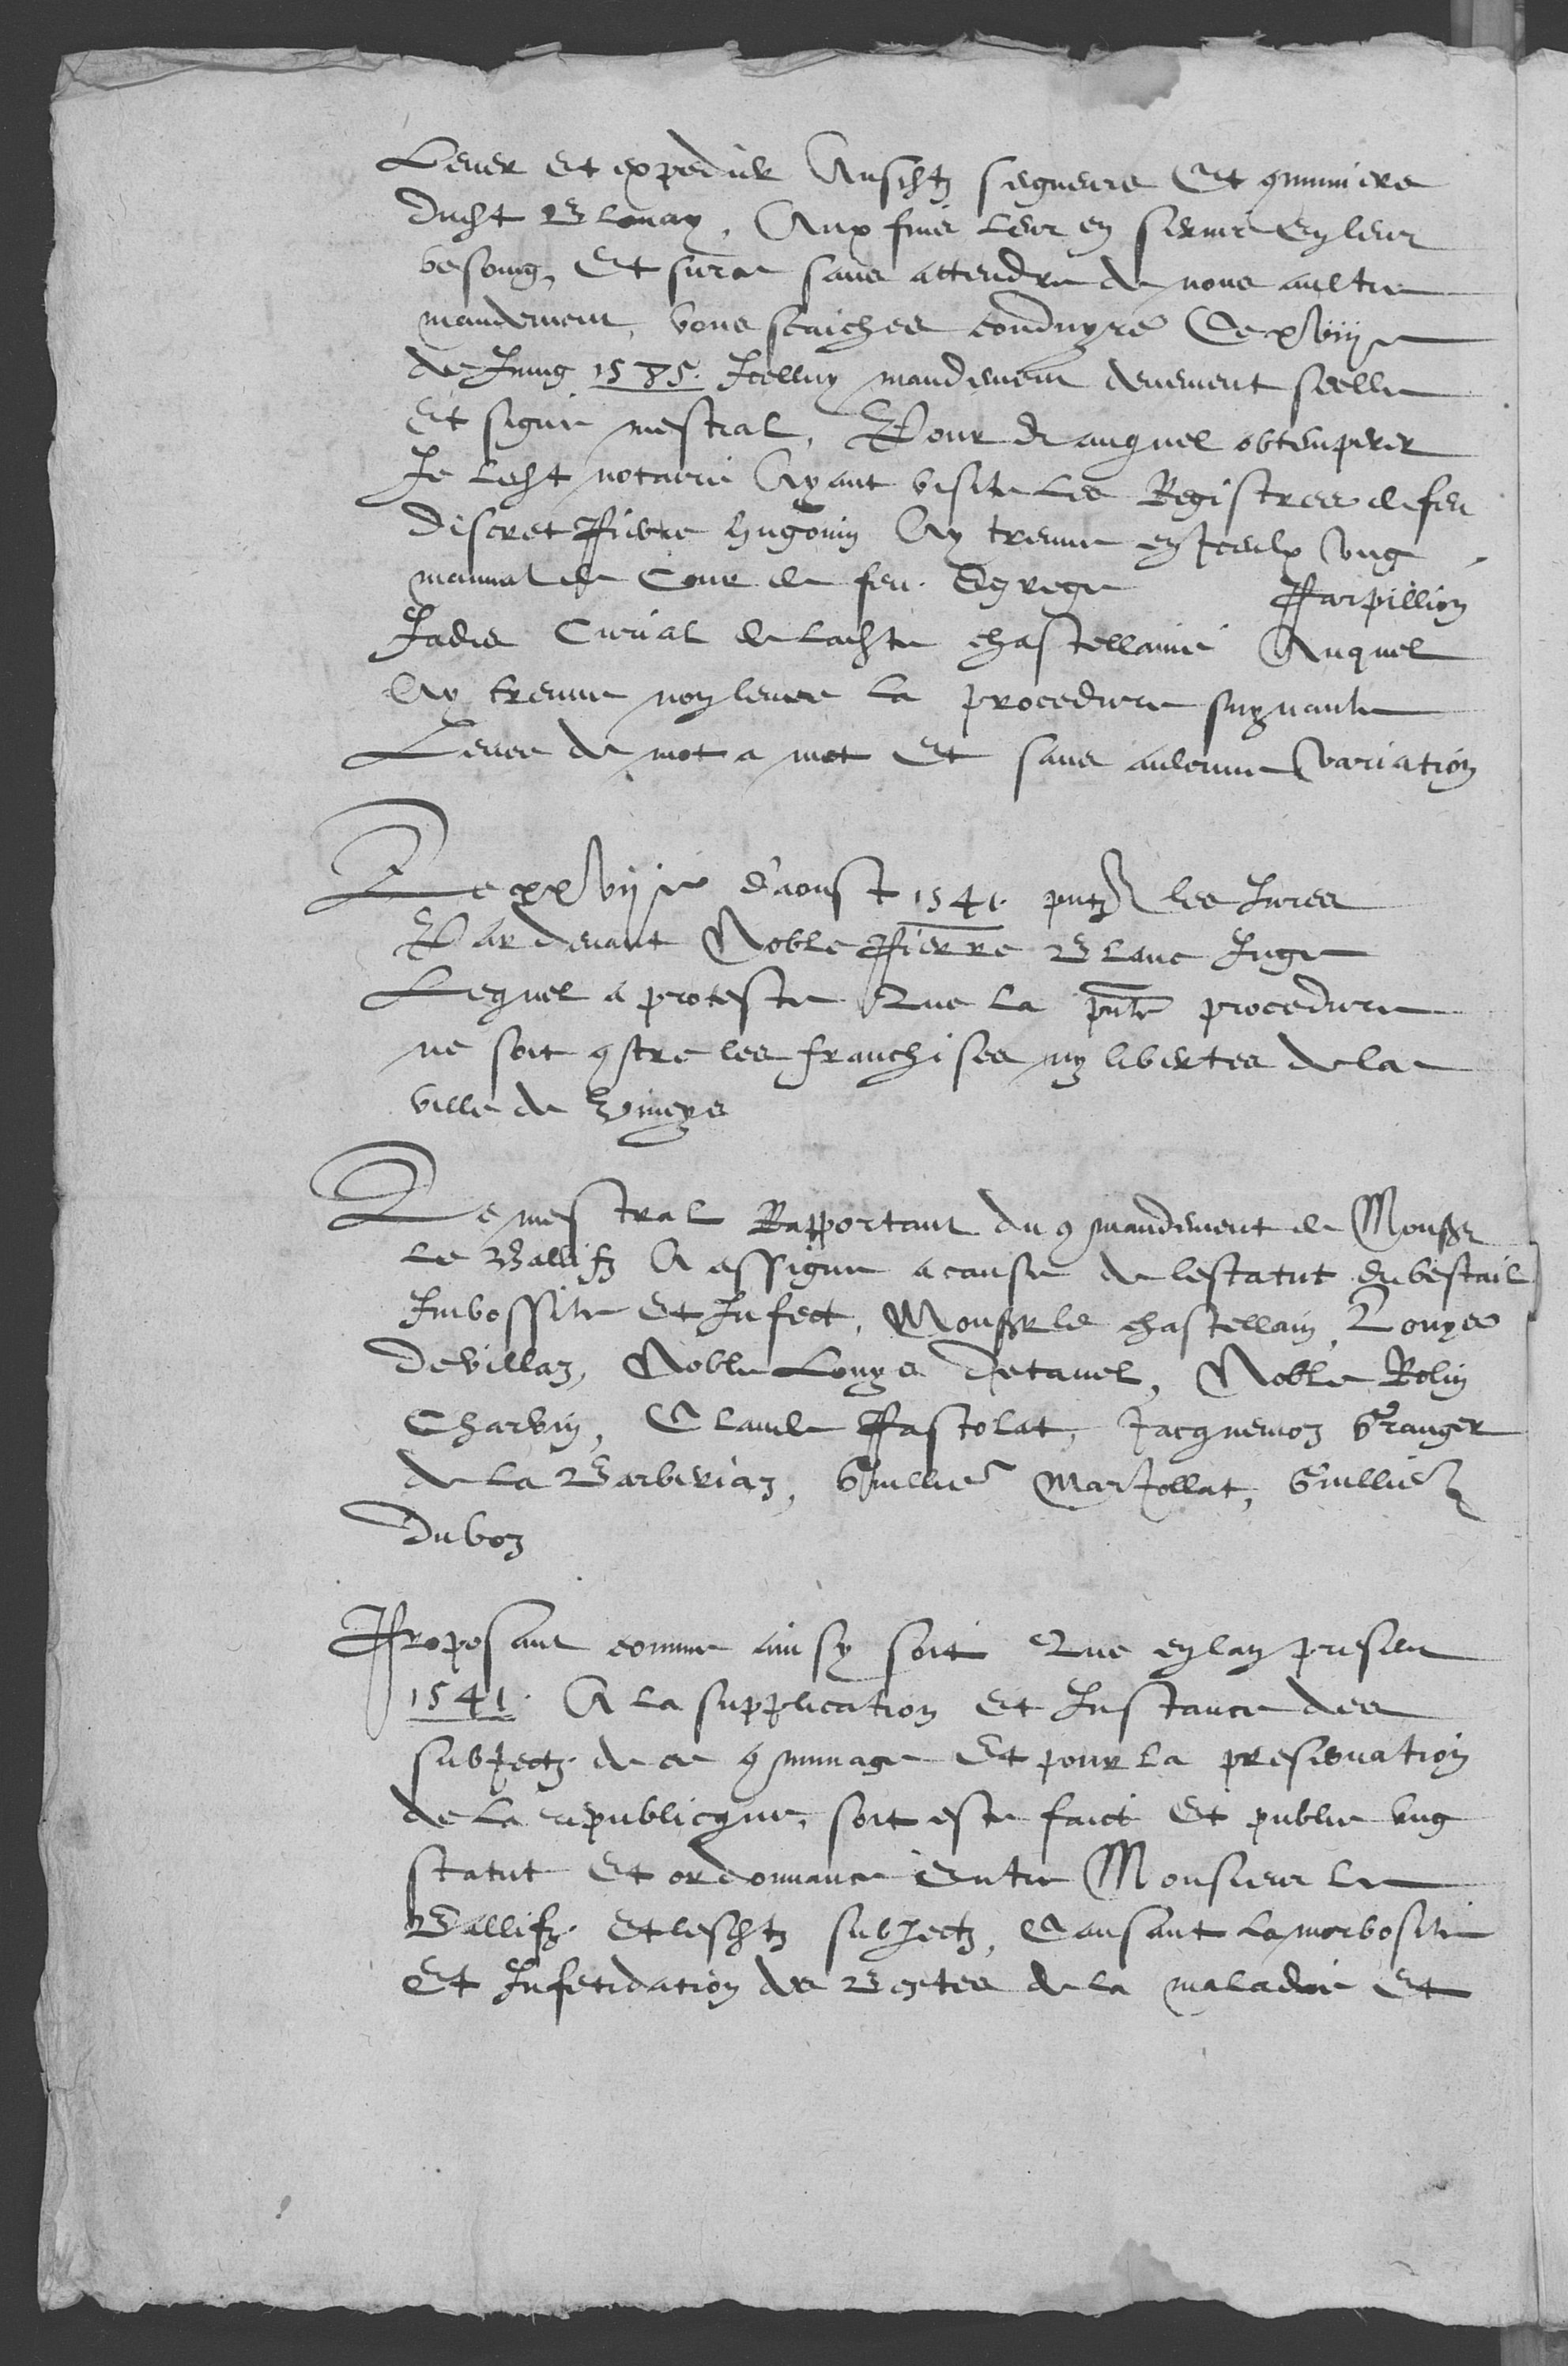 Lever et expedier Ausdtz seigneurs Et 9muniers
dudt Blonay, Aux fins leur en servir En leur
besoing, Et surce sans attendre de nous aultre
mandement, vous scaiches conduyre Ce xviije
de Juing 1585. Icelluy mandement deuement seelle
Et signe mestral, Pour Et auquel obtemperer
Je ledt notaire Ayant visite les Registres de feu
discret Pierre hugonin Ay treuue en Iceulx Vng
manual de Cour de feu Egrege Parpillion
Jadis Curial de ladte chastellanie Auquel
Ay treuue non leuee la procedure suyuante
Leuee de mot a mot Et sans aulcune Variation
Le xxvije d'aoust 1541. pntz les Jures
Par deuant Noble Pierre Blanc Juge
Lequel a proteste Que la pnte procedure
ne soit 9tre les franchises ny libertes de la
ville de Viueys
Le mestral Rapportant du 9mandement de Monsr
le Ballifz A assigne a cause de lestatut du bestail
Imbossite Et Infect, Monsr le chastellain Louys
de villaz, Noble Louys de tauel, Noble Rolin
Charvin, Claude Pastolat, Jacquemoz Granger
de la Barberiaz, Guillie Marjollat, Guillie
du boz
Proposant comme ainsy soit Que en lan present
1541. A la supplication Et Instance des
subjectz de ce 9munage Et pour la preseruation
de la republicque, soit este faict Et publie vng
statut Et ordonnance Entre Monsieur le
Ballifz Et lesdtz subjectz, Causant la morbosite
Et Infetidation des Bestes de la maladie Et